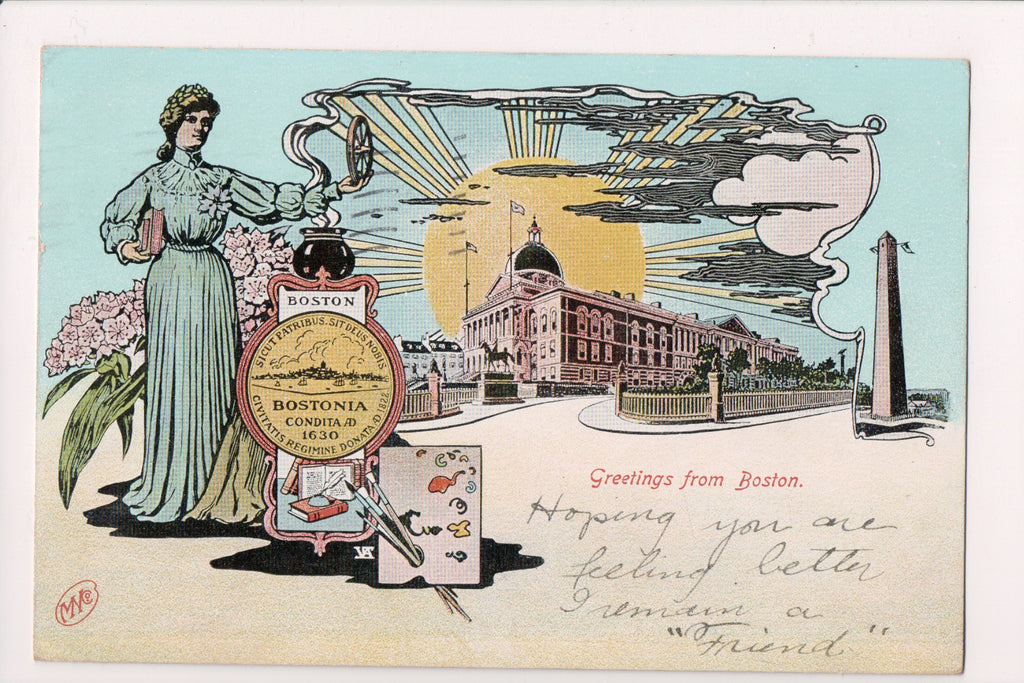 BOSTON
SICUT PATRIBUS. SIT DEUS NOBIS
BOSTONIA
CONDITA AD
1630
CIVITATIS REGIMINE DONATA AD 1822
VA
MMCo
Greetings from Boston.
Hoping you are
feeling better
I remain a
"Friend"